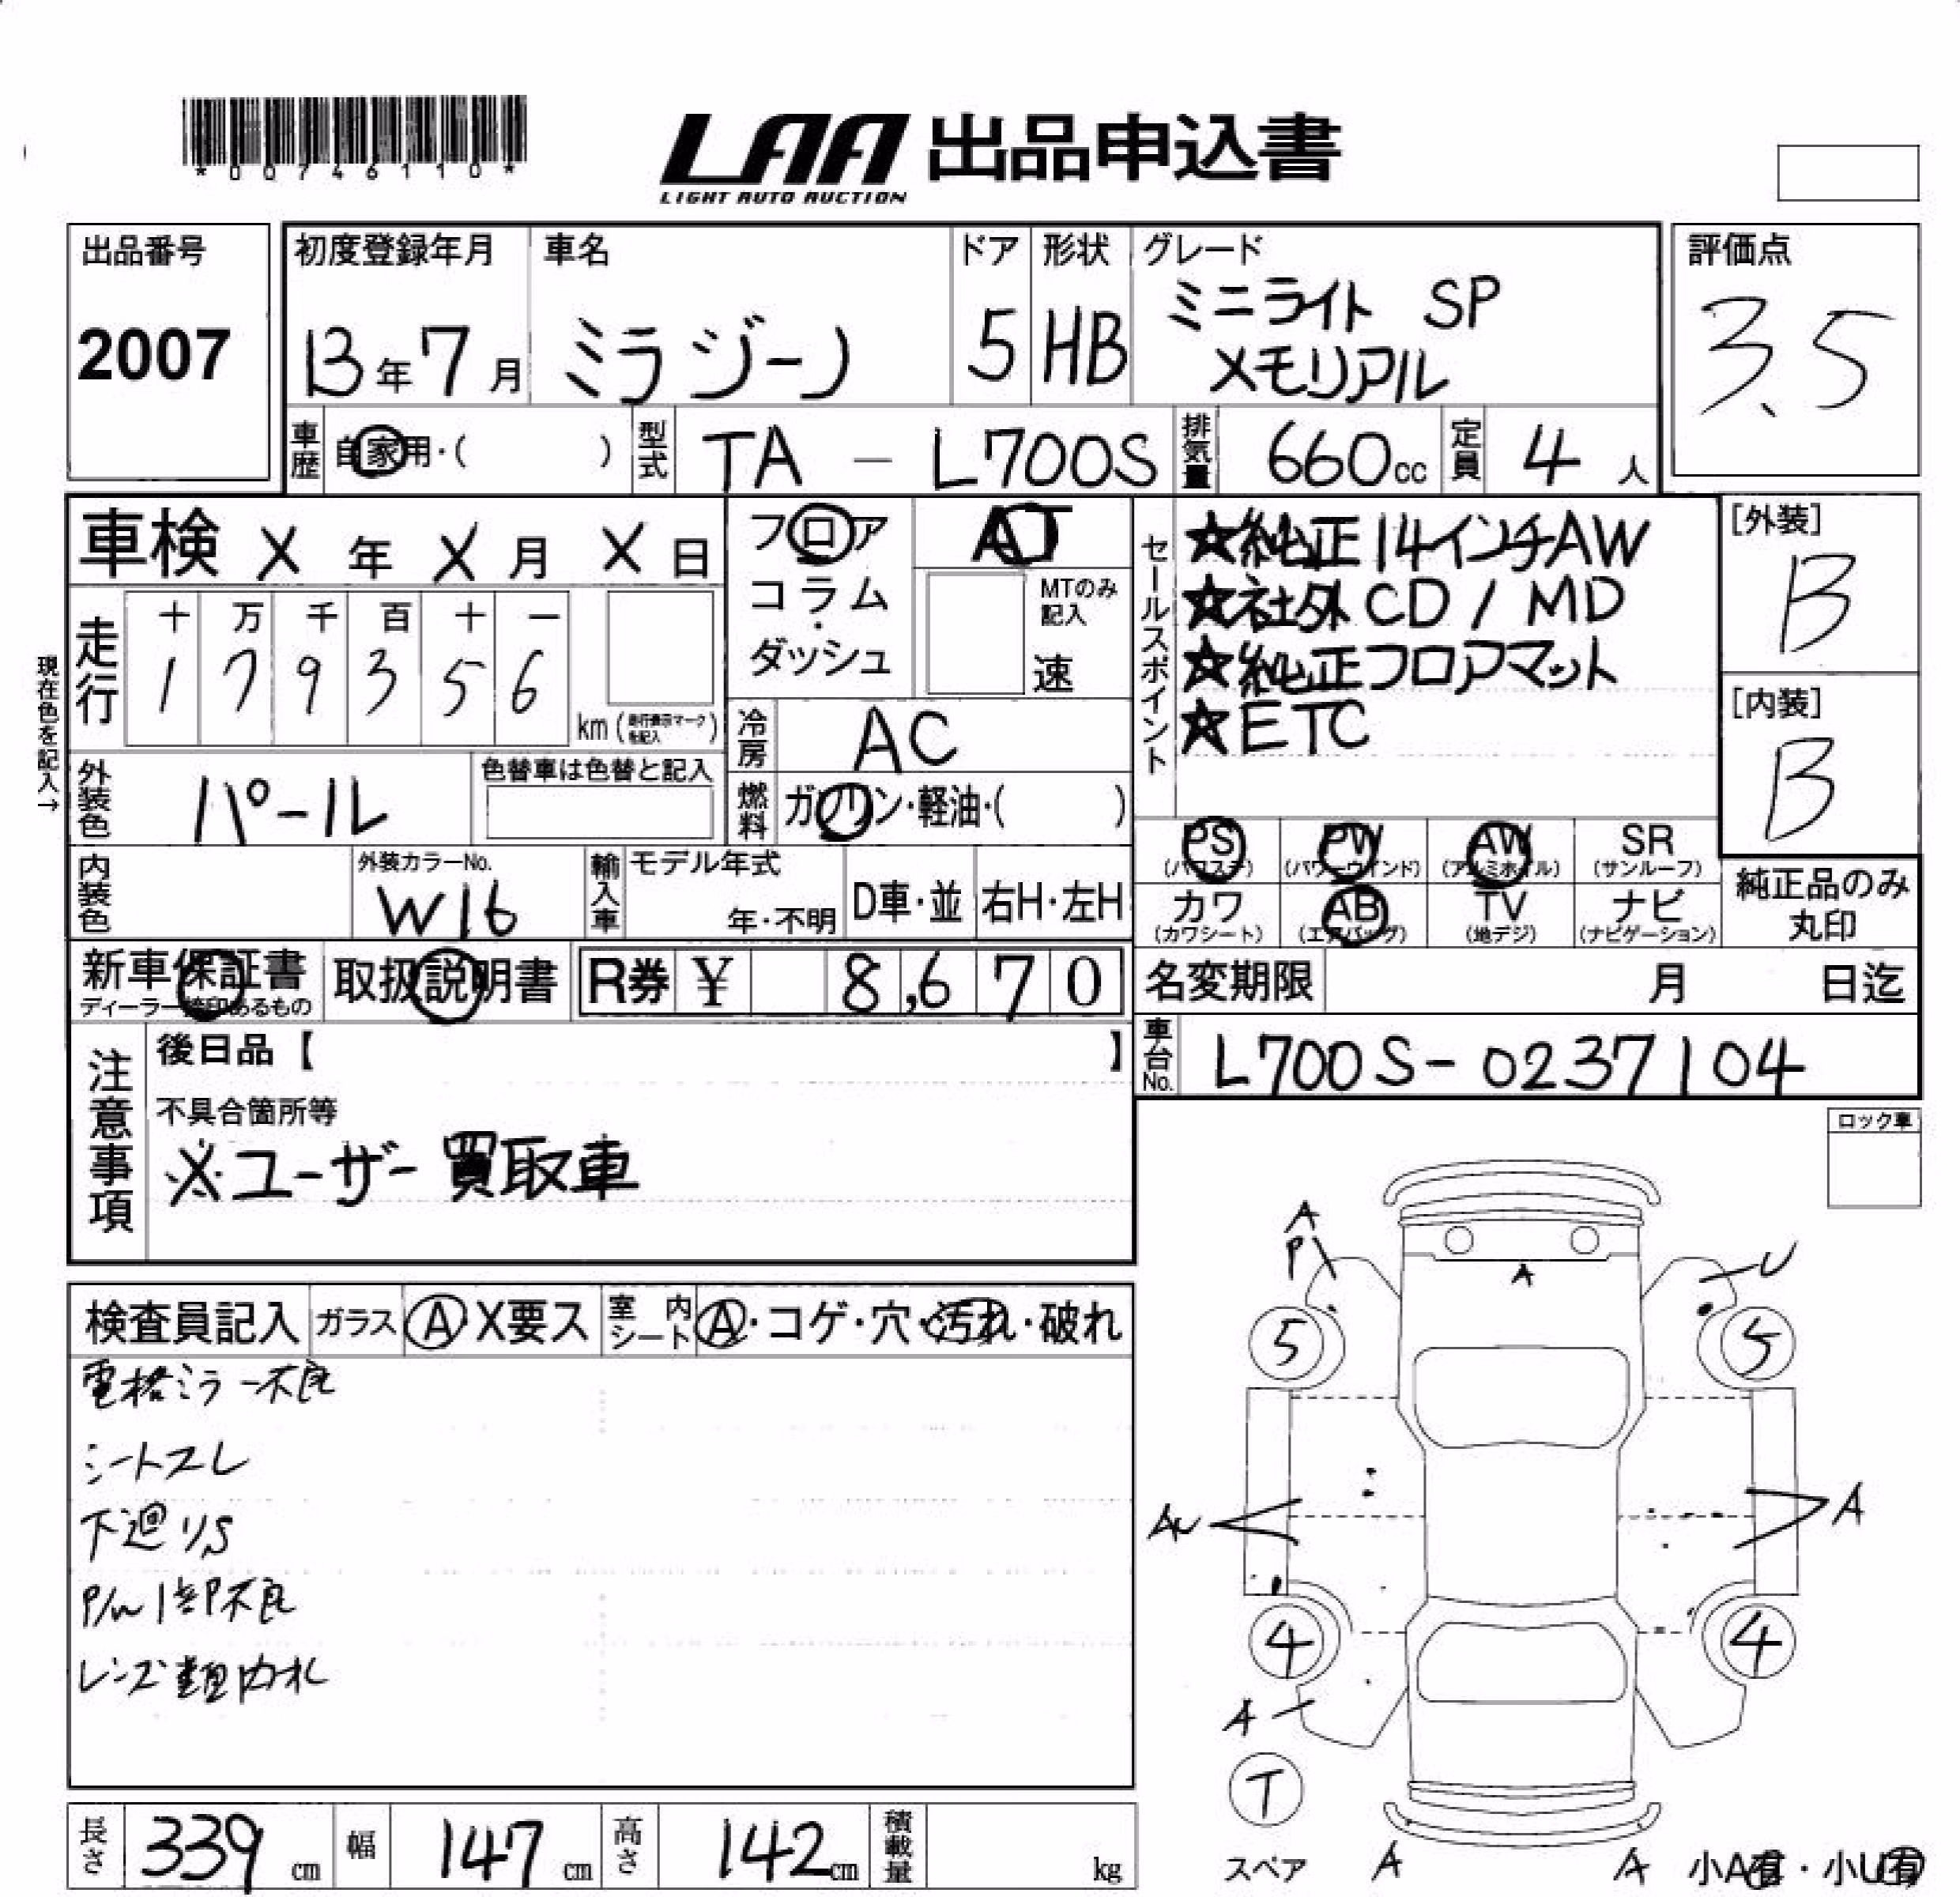 *00746110*
LAA 出品申込書
LIGHT AUTO AUCTION
出品番号
2007
初度登録年月
13年7月
車名
ミラジーノ
ドア
5
形状
HB
グレード
ミニライト SP
メモリアル
評価点
3.5
車歴 自家用・( )
型式 TA - L700S
排気量 660cc
定員 4人
車検 X年X月X日
フロア
コラム
・
ダッシュ
AT
MTのみ
記入
速
現在色を記入→
走行
十 万 千 百 十 一
1 7 9 3 5 6
km(走行表示マークを記入)
冷房 AC
燃料 ガソリン・軽油・( )
外装色 パール
色替車は色替と記入
内装色
外装カラーNo.
W16
輸入車
モデル年式
年・不明
D車・並
右H・左H
セールスポイント
☆純正14インチAW
☆社外CD/MD
☆純正フロアマット
☆ETC
[外装]
B
[内装]
B
PS
(パワステ)
PW
(パワーウインド)
AW
(アルミホイル)
SR
(サンルーフ)
カワ
(カワシート)
AB
(エアバッグ)
TV
(地デジ)
ナビ
(ナビゲーション)
純正品のみ
丸印
新車保証書
ディーラー捺印あるもの
取扱説明書
R券 ¥ 8,670
名変期限 月 日迄
車台No. L700S-0237104
注意事項
後日品【 】
不具合箇所等
※ユーザー買取車
ロック車
検査員記入 ガラス A X要ス
室内シート A・コゲ・穴・汚れ・破れ
電格ミラー不良
シートスレ
下廻りS
P/W1部不良
レンズ類内札
A
P
U
A
5
5
AU
A
4
4
A
T
スペア
A
A
小A有・小U有
長さ 339cm
幅 147cm
高さ 142cm
積載量 kg